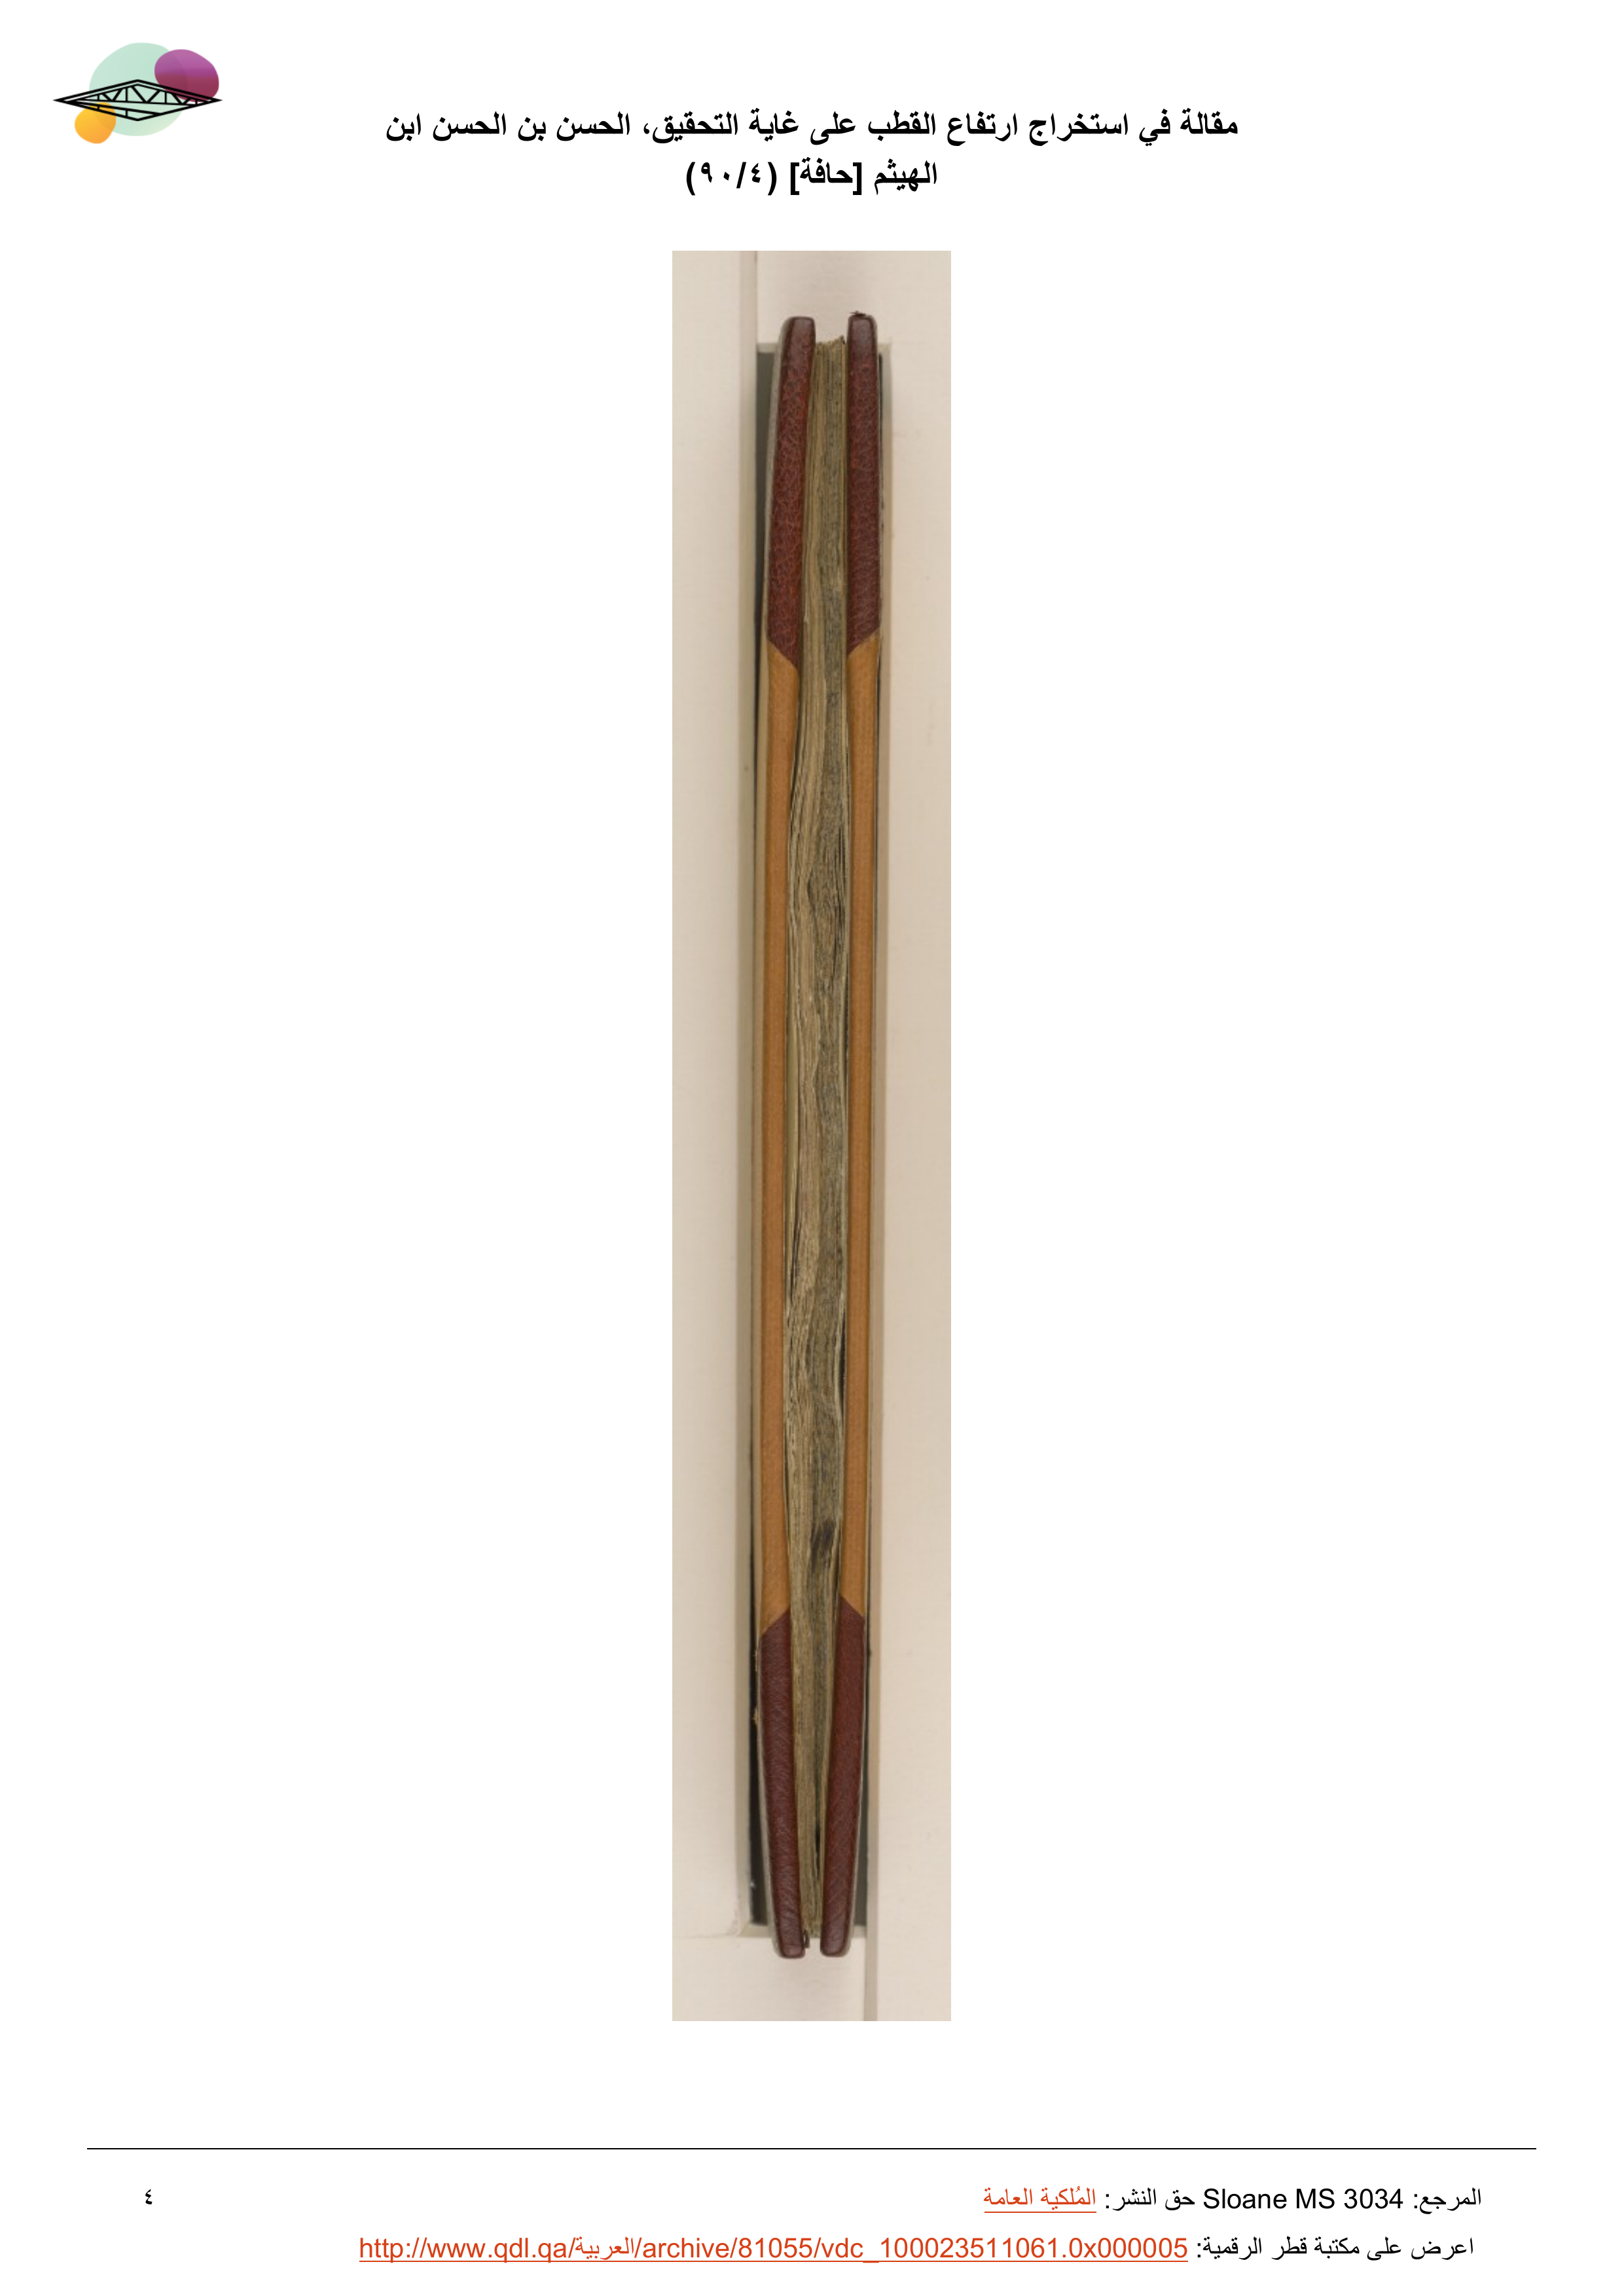 مقالة في استخراج ارتفاع القطب على غاية التحقيق، الحسن بن الحسن ابن
الهيثم [حافة] (٩٠/٤)
المرجع: Sloane MS 3034 حق النشر: المُلكية العامة
٤
اعرض على مكتبة قطر الرقمية: http://www.qdl.qa/العربية/archive/81055/vdc_100023511061.0x000005